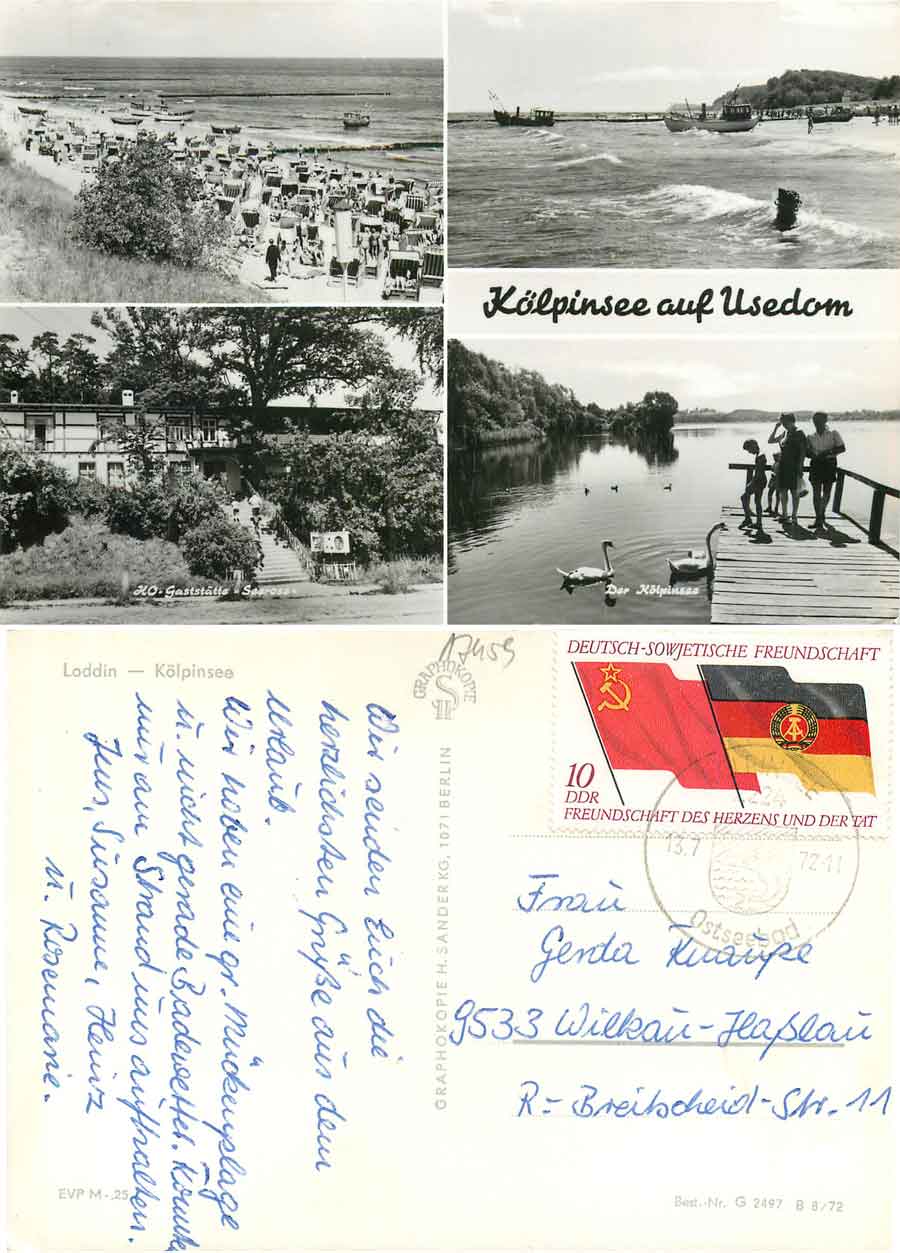 Kölpinsee auf Usedom
HO-Gaststätte "Seerose"
Der Kölpinsee
Loddin — Kölpinsee
17459
GRAPHOKOPIE
H S
DEUTSCH-SOWJETISCHE FREUNDSCHAFT
10
DDR
FREUNDSCHAFT DES HERZENS UND DER TAT
2224
13.7
72-11
Ostseebad
Wir senden Euch die
herzlichsten Grüße aus dem
Urlaub.
Wir haben eine gr. Mückenplage
u. nicht gerade Badewetter. Konnten
nur am Strand uns aufhalten.
Jens, Susanne, Heinz
u. Rosemarie.
GRAPHOKOPIE H. SANDER KG, 1071 BERLIN
Frau
Gerda Knaupe
9533 Wilkau-Haßlau
R.-Breitscheid-Str. 11
EVP M -,25
Best.-Nr. G 2497 B 8/72